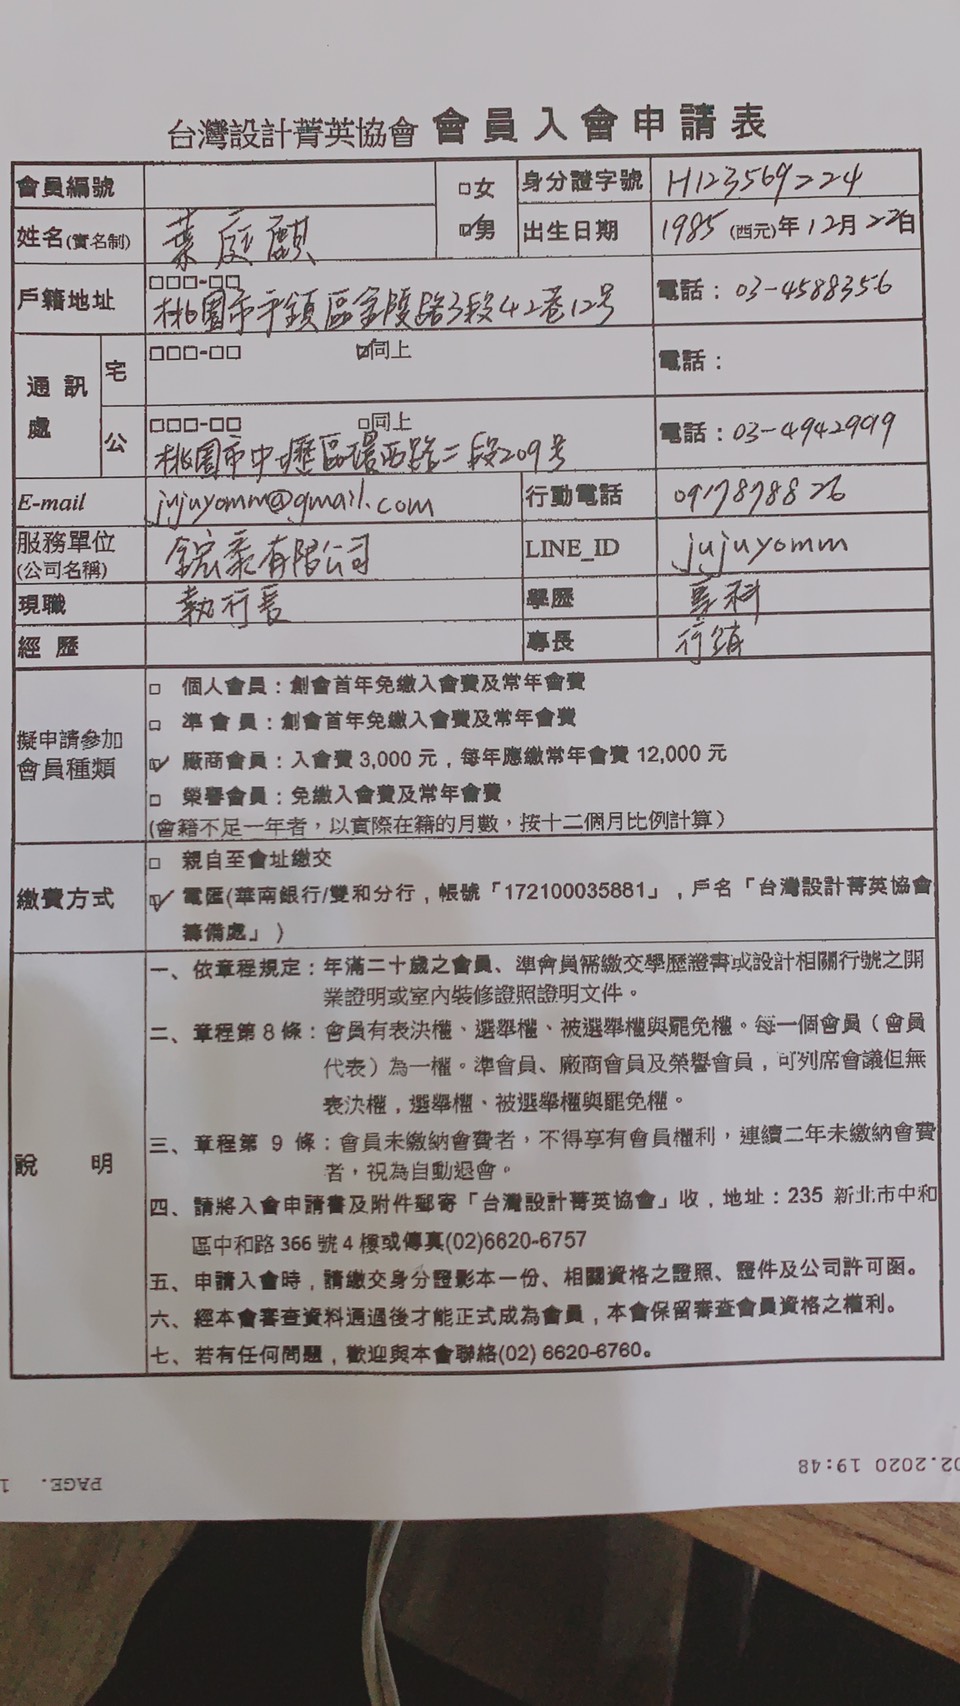 台灣設計菁英協會 會員入會申請表
會員編號 □女 身分證字號 H123569224
姓名(實名制) 葉庭麒 ☑男 出生日期 1985 (西元)年12月22日
戶籍地址 □□□-□□ 電話：03-4588356
桃園市平鎮區金陵路3段42巷12號
通訊處 宅 □□□-□□ ☑同上 電話：
公 □□□-□□ □同上 電話：03-4942999
桃園市中壢區環西路二段209號
E-mail jujuyomm@gmail.com 行動電話 0917898826
服務單位 有限公司 LINE_ID jujuyomm
(公司名稱)
現職 執行長 學歷 專科
經歷 專長 行銷
擬申請參加會員種類
□ 個人會員：創會首年免繳入會費及常年會費
□ 準會員：創會首年免繳入會費及常年會費
☑ 廠商會員：入會費 3,000 元，每年應繳常年會費 12,000 元
□ 榮譽會員：免繳入會費及常年會費
(會籍不足一年者，以實際在籍的月數，按十二個月比例計算)
繳費方式
□ 親自至會址繳交
☑ 電匯(華南銀行/雙和分行，帳號「172100035881」，戶名「台灣設計菁英協會
籌備處」)
說 明
一、依章程規定：年滿二十歲之會員、準會員需繳交學歷證書或設計相關行號之開
業證明或室內裝修證照證明文件。
二、章程第 8 條：會員有表決權、選舉權、被選舉權與罷免權。每一個會員（會員
代表）為一權。準會員、廠商會員及榮譽會員，可列席會議但無
表決權，選舉權、被選舉權與罷免權。
三、章程第 9 條：會員未繳納會費者，不得享有會員權利，連續二年未繳納會費
者，視為自動退會。
四、請將入會申請書及附件郵寄「台灣設計菁英協會」收，地址：235 新北市中和
區中和路 366 號 4 樓或傳真(02)6620-6757
五、申請入會時，請繳交身分證影本一份、相關資格之證照、證件及公司許可函。
六、經本會審查資料通過後才能正式成為會員，本會保留審查會員資格之權利。
七、若有任何問題，歡迎與本會聯絡(02) 6620-6760。
02.2020 19:48
PAGE. 1